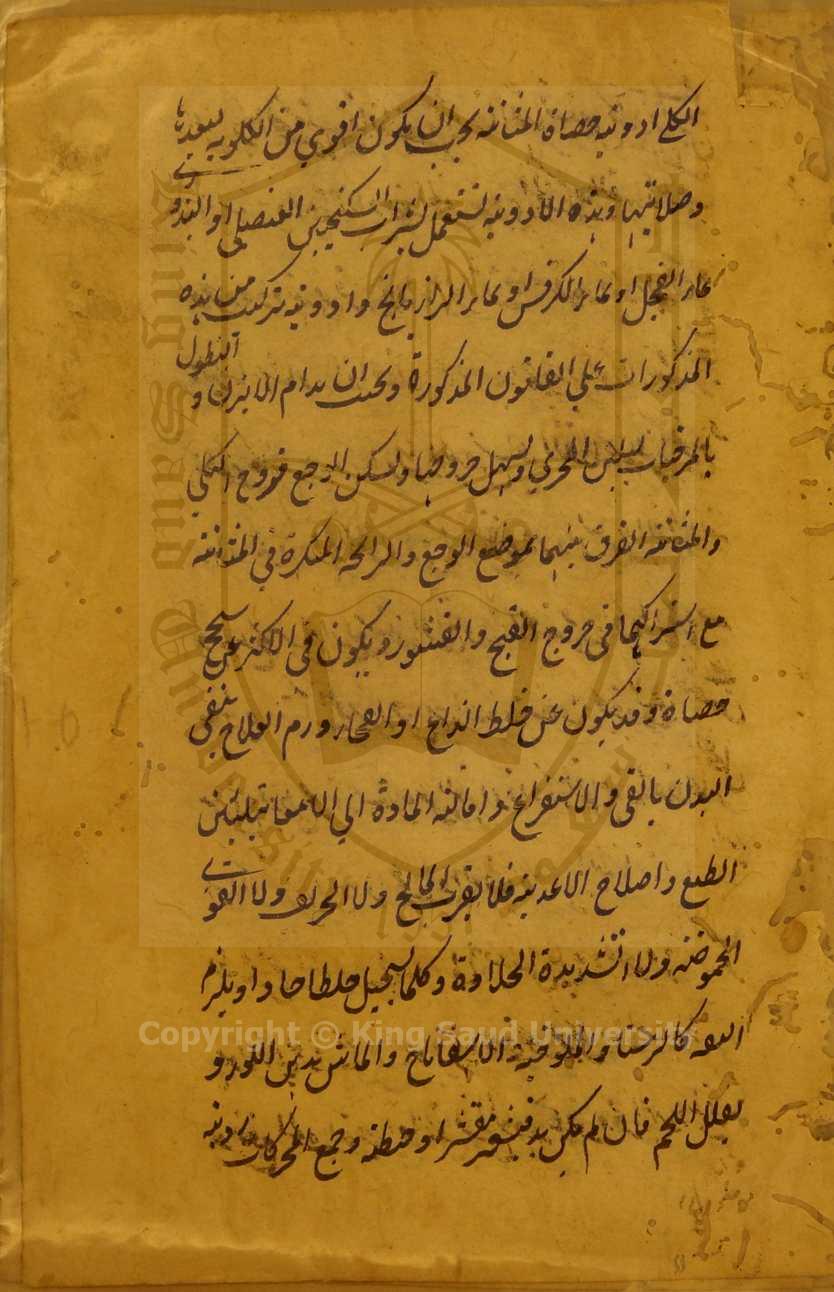 الكلى ادوية حصاة المثانة يجب ان يكون اقوي من الكلوية لبعدها
وصلابتها وهذه الادوية تستعمل بشراب السكنجبين العنصلي او البزوري
بماء الفجل او بماء الكرفس او بماء الرازيانج وادوية تركب من هذه
المذكورات علي القانون المذكورة ويجب ان يدام الابزن و النطول
بالمرخيات ليلين المجري ويسهل خروجها ويسكن الوجع قروح الكلي
والمثانة الفرق بينهما بموضع الوجع والرائحة المنكرة في المثانة
مع اشتراكهما في خروج القيح والقشور ويكون في الاكثر عن سحج
حصاة وقد يكون عن خلط او انفجار ورم العلاج ينقي
البدن بالقي والاستفراغ وامالة المادة الي الامعا بتليين
الطبع واصلاح الاغذية فلا يقرب المالح ولا الحريف ولا القوي
الحموضة ولا الشديدة الحلاوة وكلما يستحيل خلطا حادا ويلزم
والملوخية والاسفاناخ والماش بدهن اللوز و
يقلل اللحم فان لم يكن بد مقشر او حنطة وجمع المحركات ردية
Copyright © King Saud University